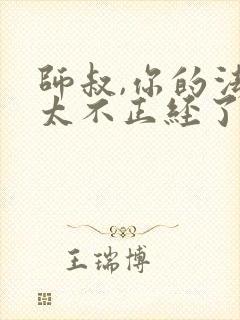 师叔,你的法
太不正经了
王瑞博